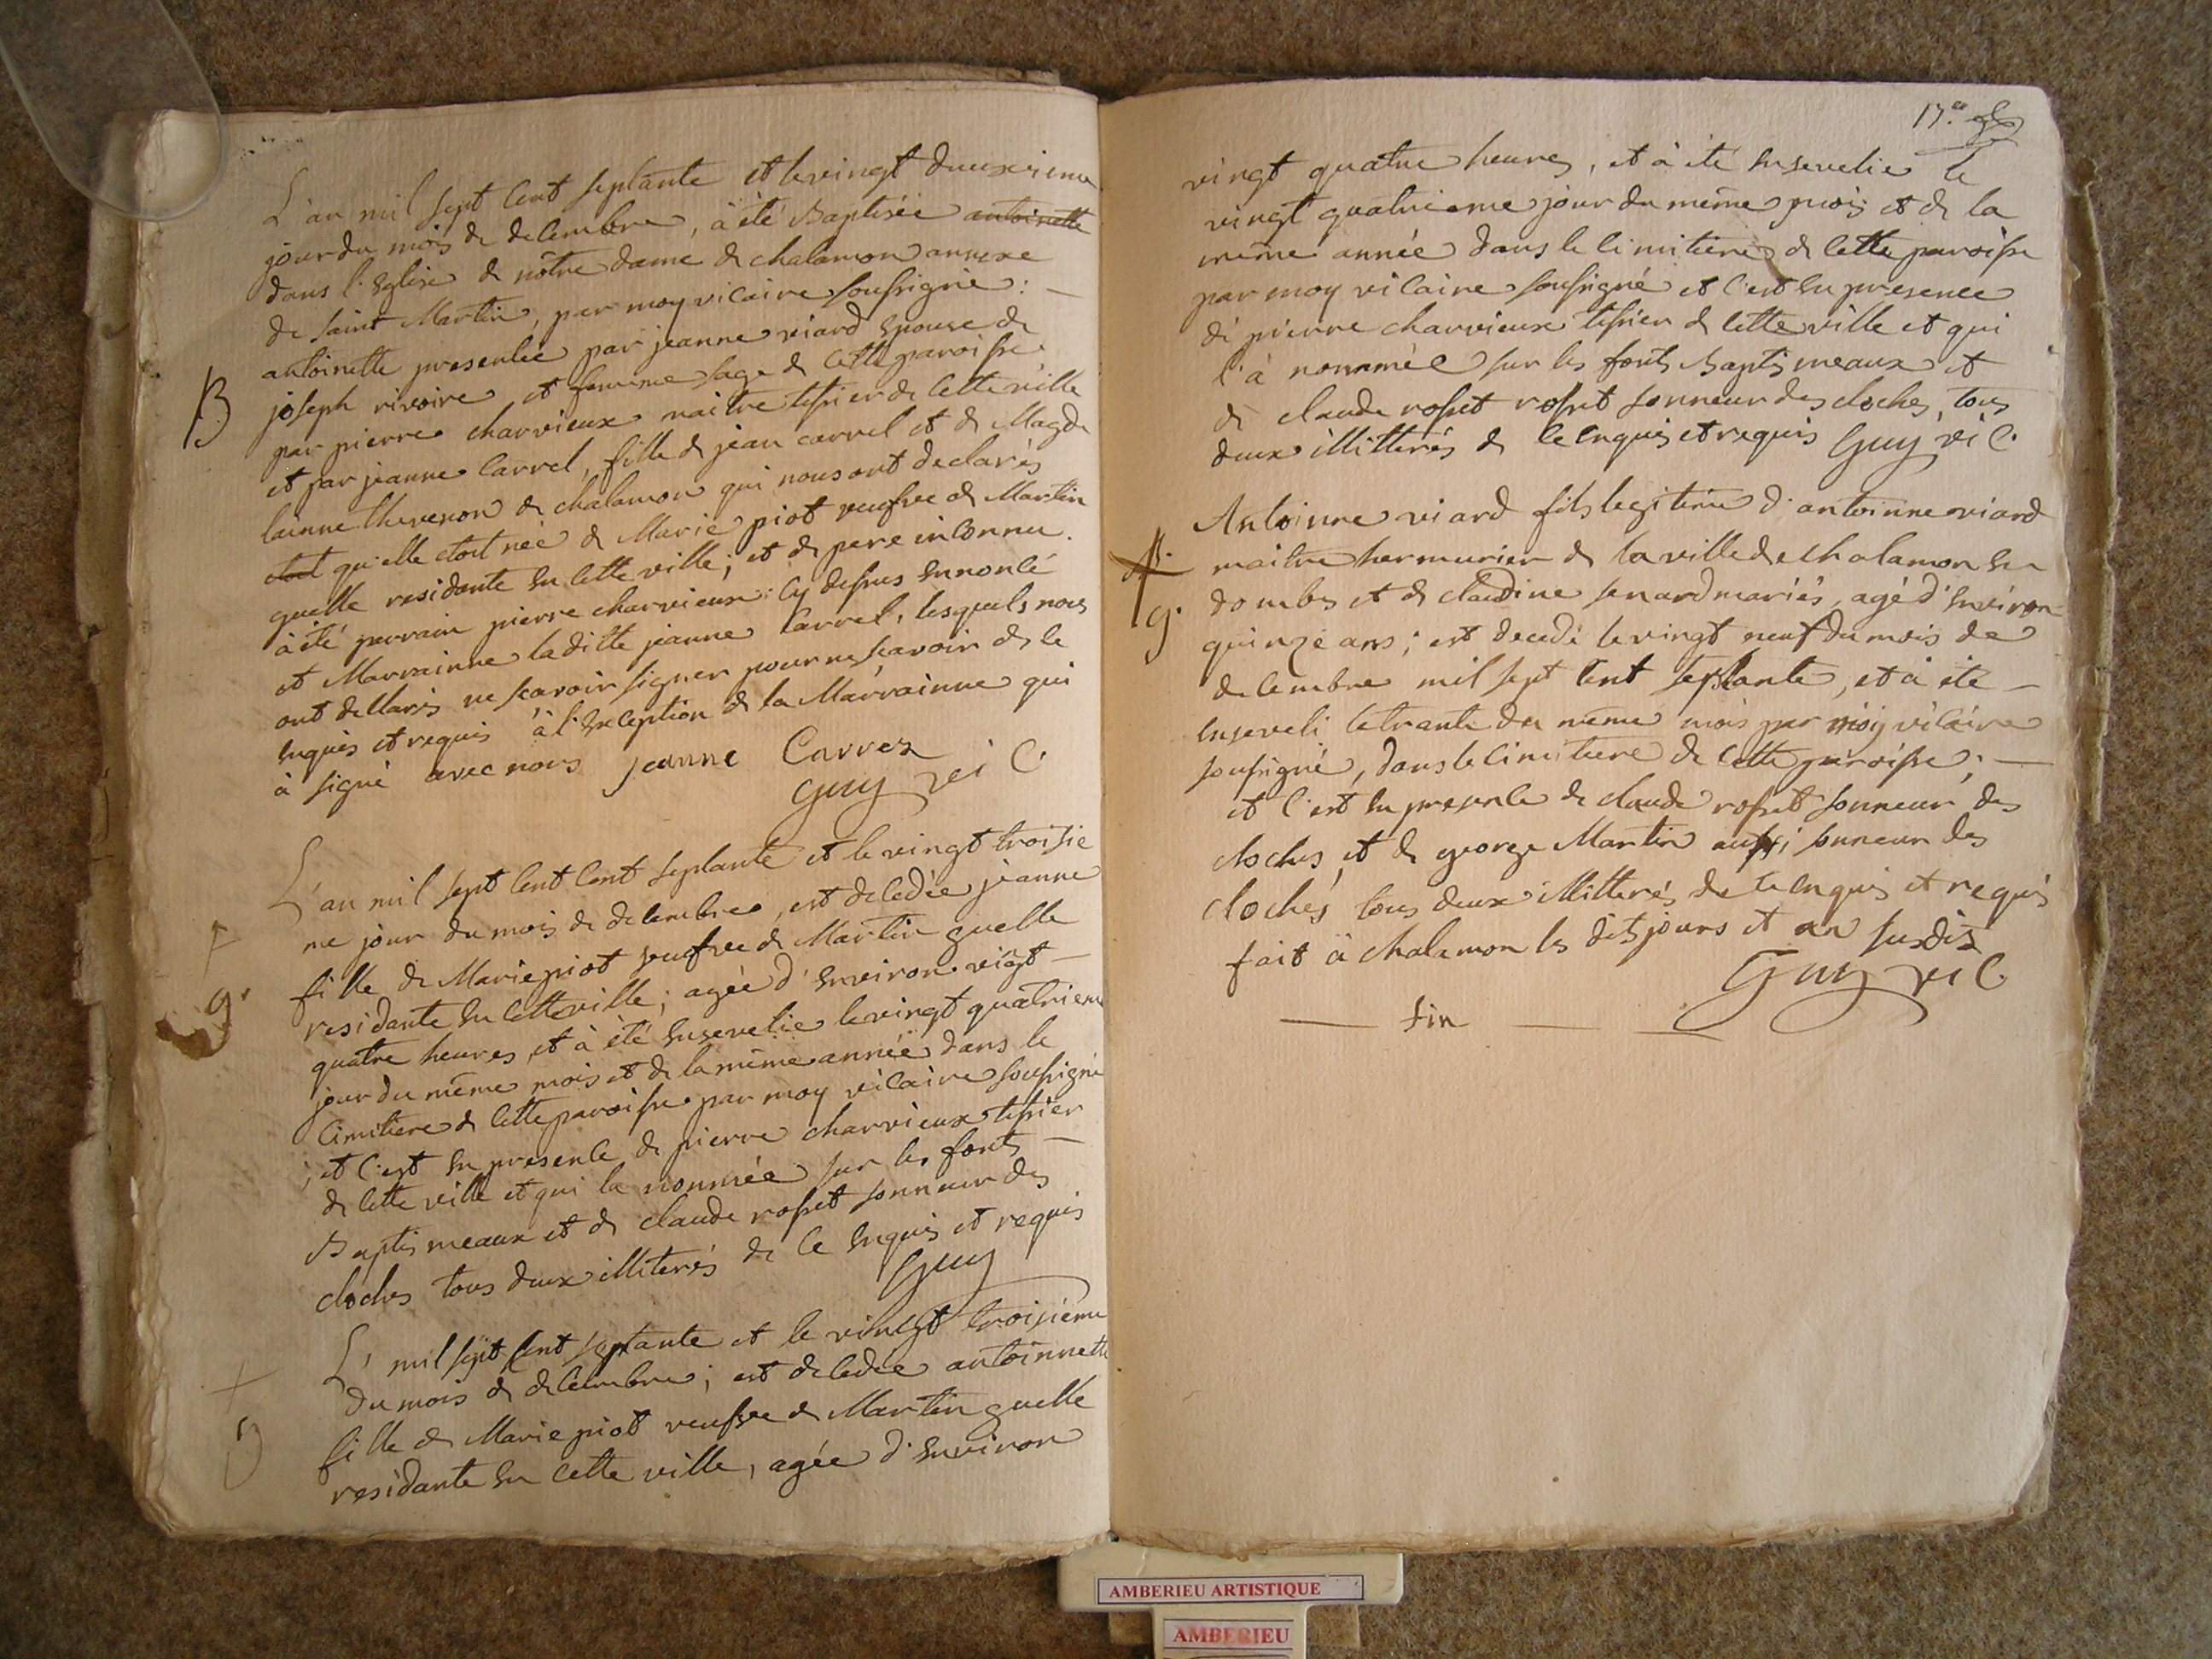 L'an mil sept cent septante et le vingt deuxieme
jour du mois de decembre, à été Baptisée antoinette
dans l'Eglise de nôtre dame de chalamon annexe
de saint Martin, par moy vicaire soussigné : —
antoinette presentée par jeanne viard Epouse de
B joseph rivoire et femme sage de cette paroisse
par pierre charvieux maitre tissier de cette ville
et par jeanne Carrel, fille de jean carrel et de Magde
lainne thevenon de chalamon qui nous ont declarés
qu'elle etoit née de Marie piot veufve de Martin
guelle residante En cette ville ; et de pere inconnu.
à été parrain pierre charvieux : Cy dessus Enoncé
et Marrainne la ditte jeanne Carrel, lesquels nous
ont declarés ne scavoir signer pour ne scavoir de ce
Enquis et requis à l'Exception de la Marrainne qui
à signé avec nous jeanne Carrez
Guy vic.
L'an mil sept cent cent septante et le vingt troisie
me jour du mois de decembre, est decedée jeanne
g. fille de Marie piot veufve de Martin guelle
residante En cette ville ; agée d'Environ vigt —
quatre heures, et à été Ensevelie le vingt quatrieme
jour du même mois et de la même année dans le
Cimitiere de cette paroisse par moy vicaire soussigné
; et c'est En presence de pierre charvieux tissier
de cette ville et qui la nommée sur les fonts —
Baptismeaux et de claude rosset sonneur des
cloches tous deux illiterés de ce Enquis et requis
Guy
L' mil sept cent septante et le vingt troisieme
du mois de decembre ; est decedée antoinnette
fille de Marie piot veufve de Martin guelle
residante En cette ville, agée d'Environ
17.e
vingt quatre heures, et à été Ensevelie le
vingt quatrieme jour du même mois et de la
même année dans le cimitiere de cette paroisse
par moy vicaire soussigné et c'est En presence
de pierre charvieux tissier de cette ville et qui
l'à nommée sur les fonts Baptismeaux et
de claude rosset rosset sonneur des cloches, tous
deux illitterés de ce Enquis et requis Guy vic.
Antoinne viard fils legitime d'antoinne viard
maitre chermurier de la ville de chalamon En
g. dombes et de claudine senard mariés, agé d'Environ
quinze ans ; est decedé le vingt neuf du mois de
decembre mil sept cent septante, et à été —
Enseveli le trante du même mois par moy vicaire
soussigné, dans le cimitiere de cette paroisse ; —
et c'est En presence de claude rosset sonneur des
cloches, et de george Martin aussi sonneur des
cloches tous deux illitterés de ce Enquis et requis
fait à chalamon les dits jours et an susdits
Guy vic.
— fin —
AMBERIEU ARTISTIQUE
AMBERIEU